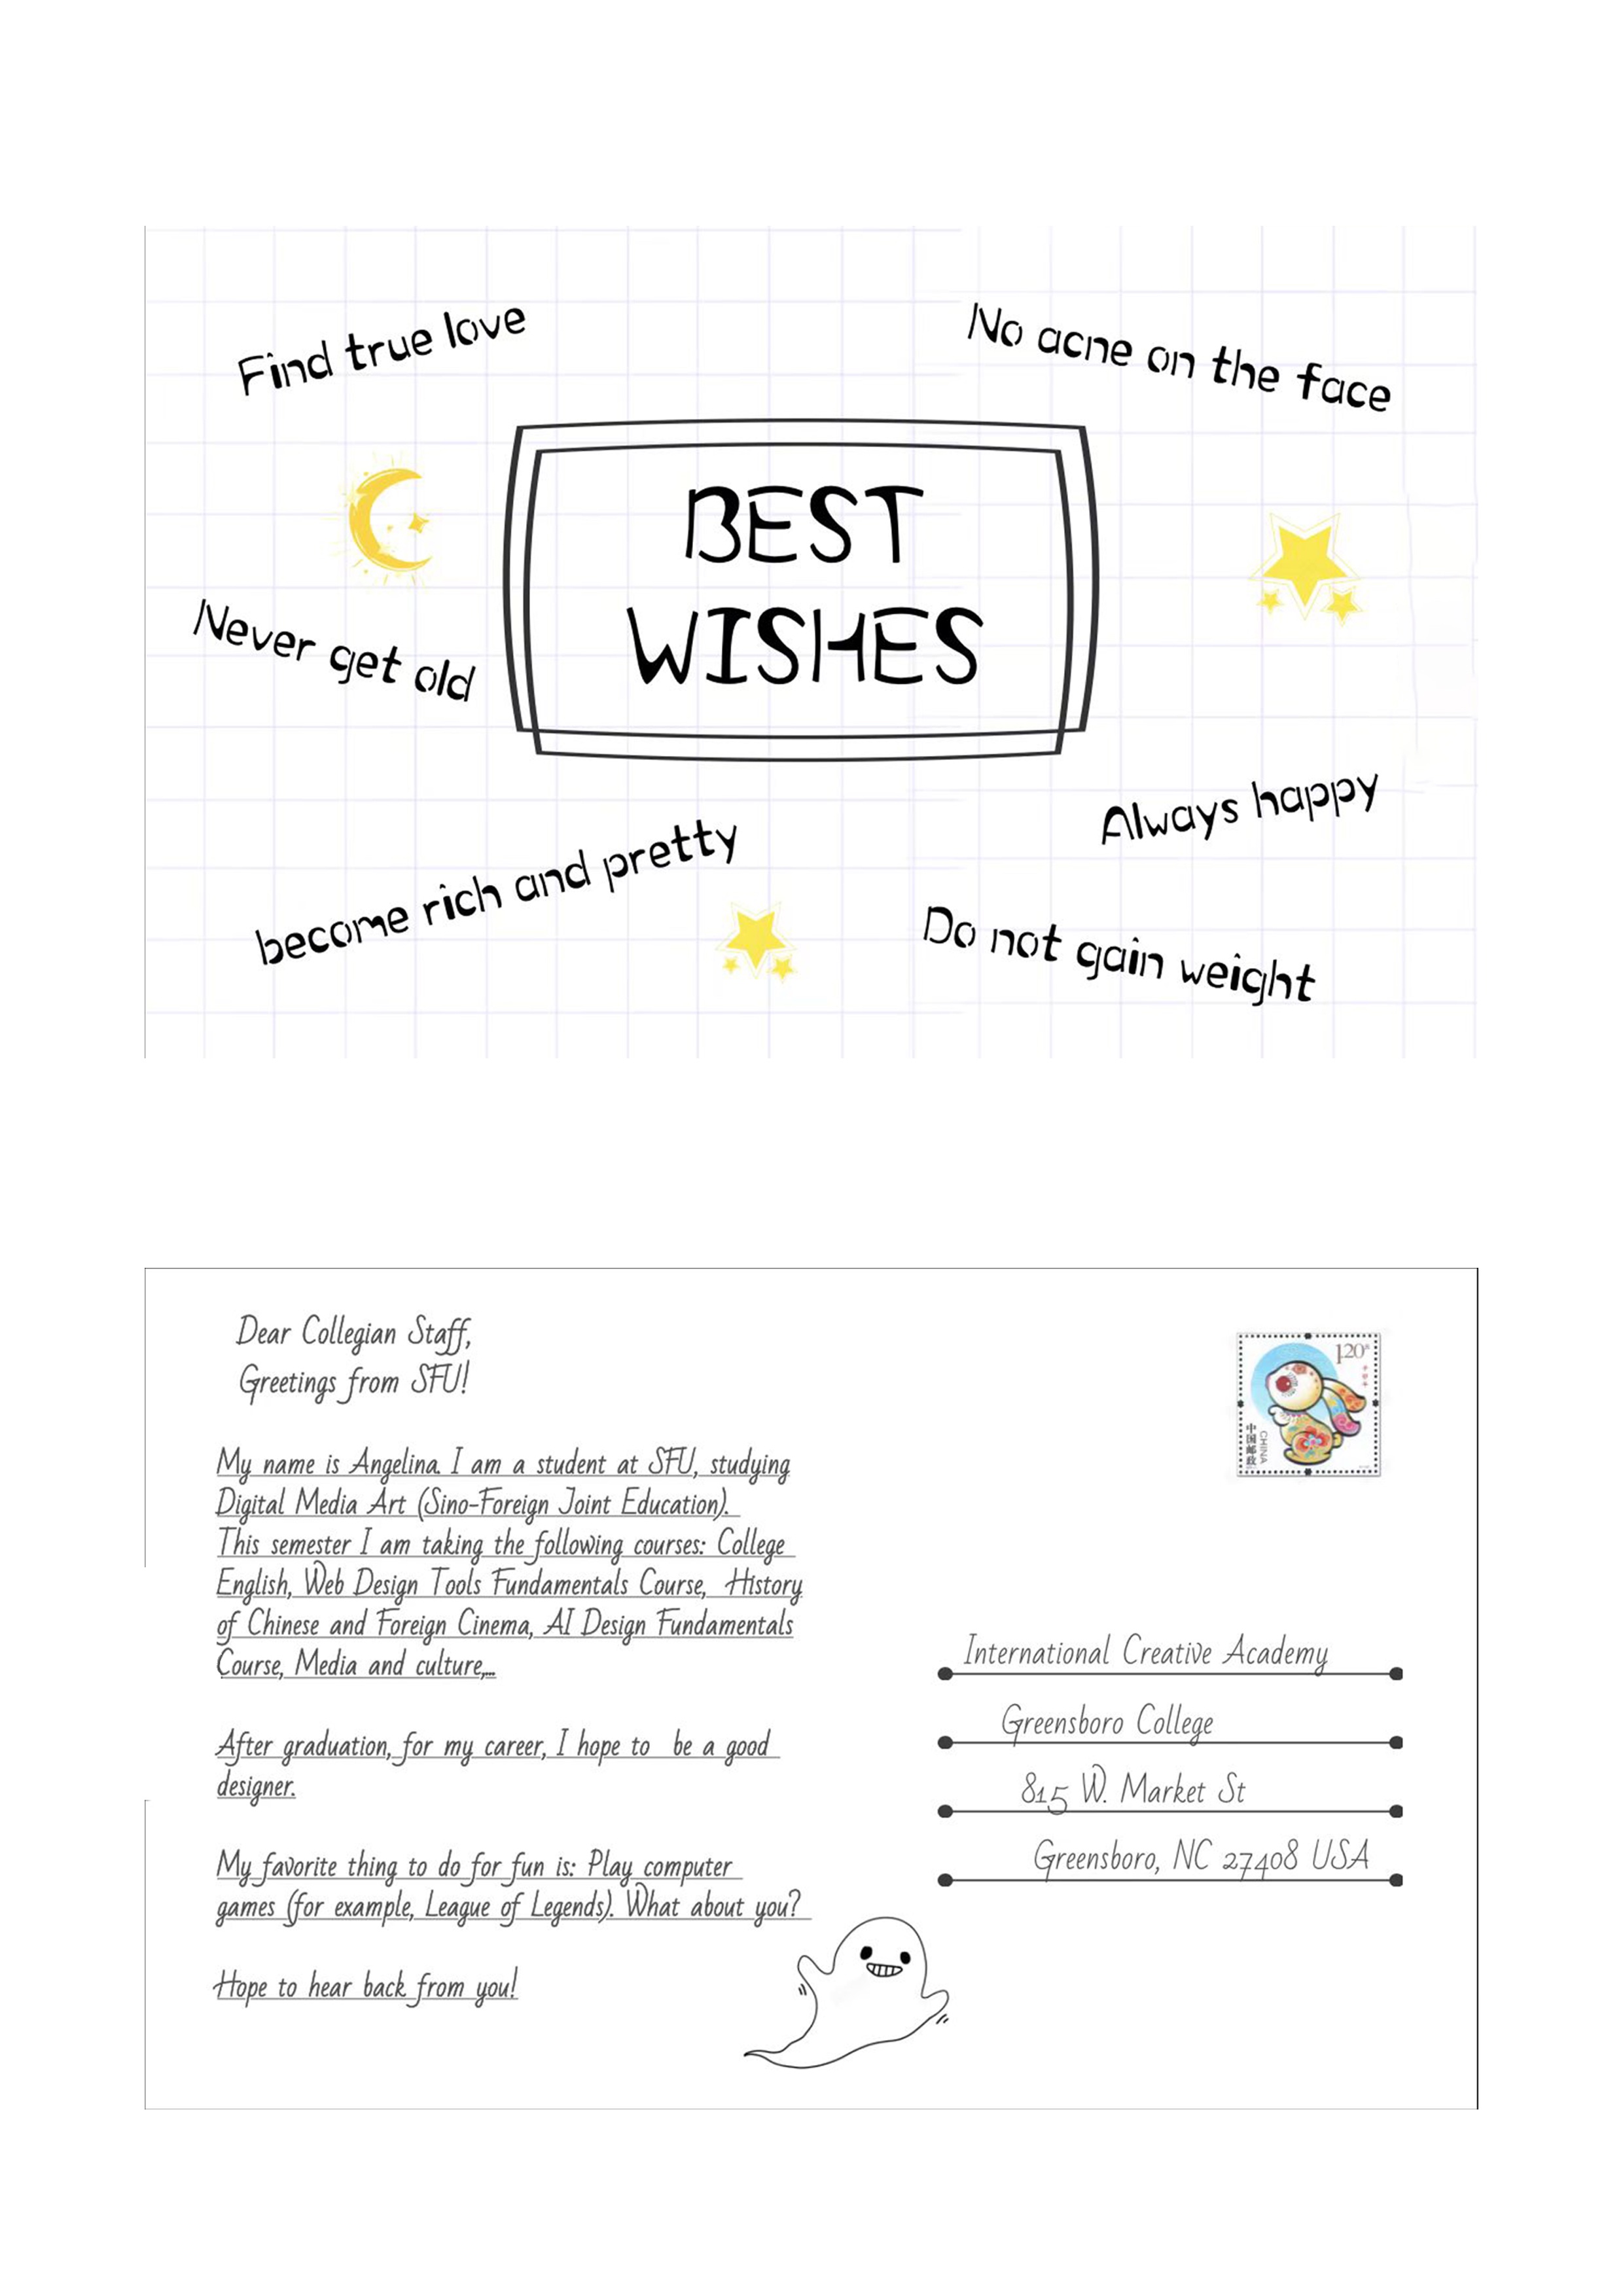 Find true love
No acne on the face
BEST
WISHES
Never get old
Always happy
become rich and pretty
Do not gain weight
Dear Collegian Staff,
Greetings from SFU!
My name is Angelina. I am a student at SFU, studying
Digital Media Art (Sino-Foreign Joint Education).
This semester I am taking the following courses: College
English, Web Design Tools Fundamentals Course, History
of Chinese and Foreign Cinema, AI Design Fundamentals
Course, Media and culture,...
After graduation, for my career, I hope to be a good
designer.
My favorite thing to do for fun is: Play computer
games (for example, League of Legends). What about you?
Hope to hear back from you!
1.20
中国邮政
CHINA
International Creative Academy
Greensboro College
815 W. Market St
Greensboro, NC 27408 USA